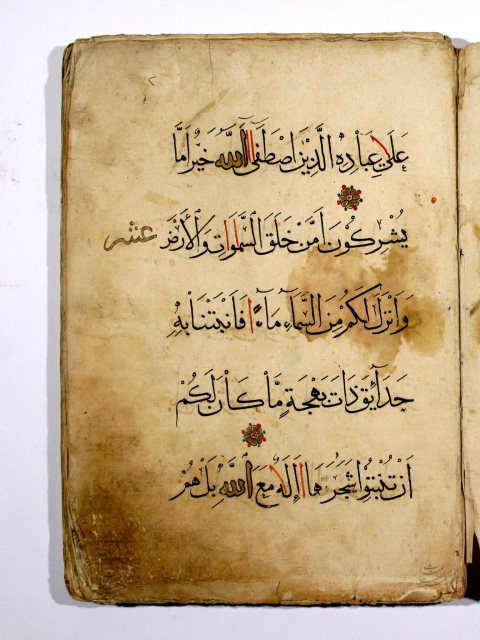 عَلَى عِبَادِهِ الَّذِينَ اصْطَفَى آللَّهُ خَيْرٌ أَمَّا
يُشْرِكُونَ أَمَّنْ خَلَقَ السَّمَاوَاتِ وَالْأَرْضَ عشر
وَأَنْزَلَ لَكُمْ مِنَ السَّمَاءِ مَاءً فَأَنْبَتْنَا بِهِ
حَدَائِقَ ذَاتَ بَهْجَةٍ مَا كَانَ لَكُمْ
أَنْ تُنْبِتُوا شَجَرَهَا أَإِلَهٌ مَعَ اللَّهِ بَلْ هُمْ